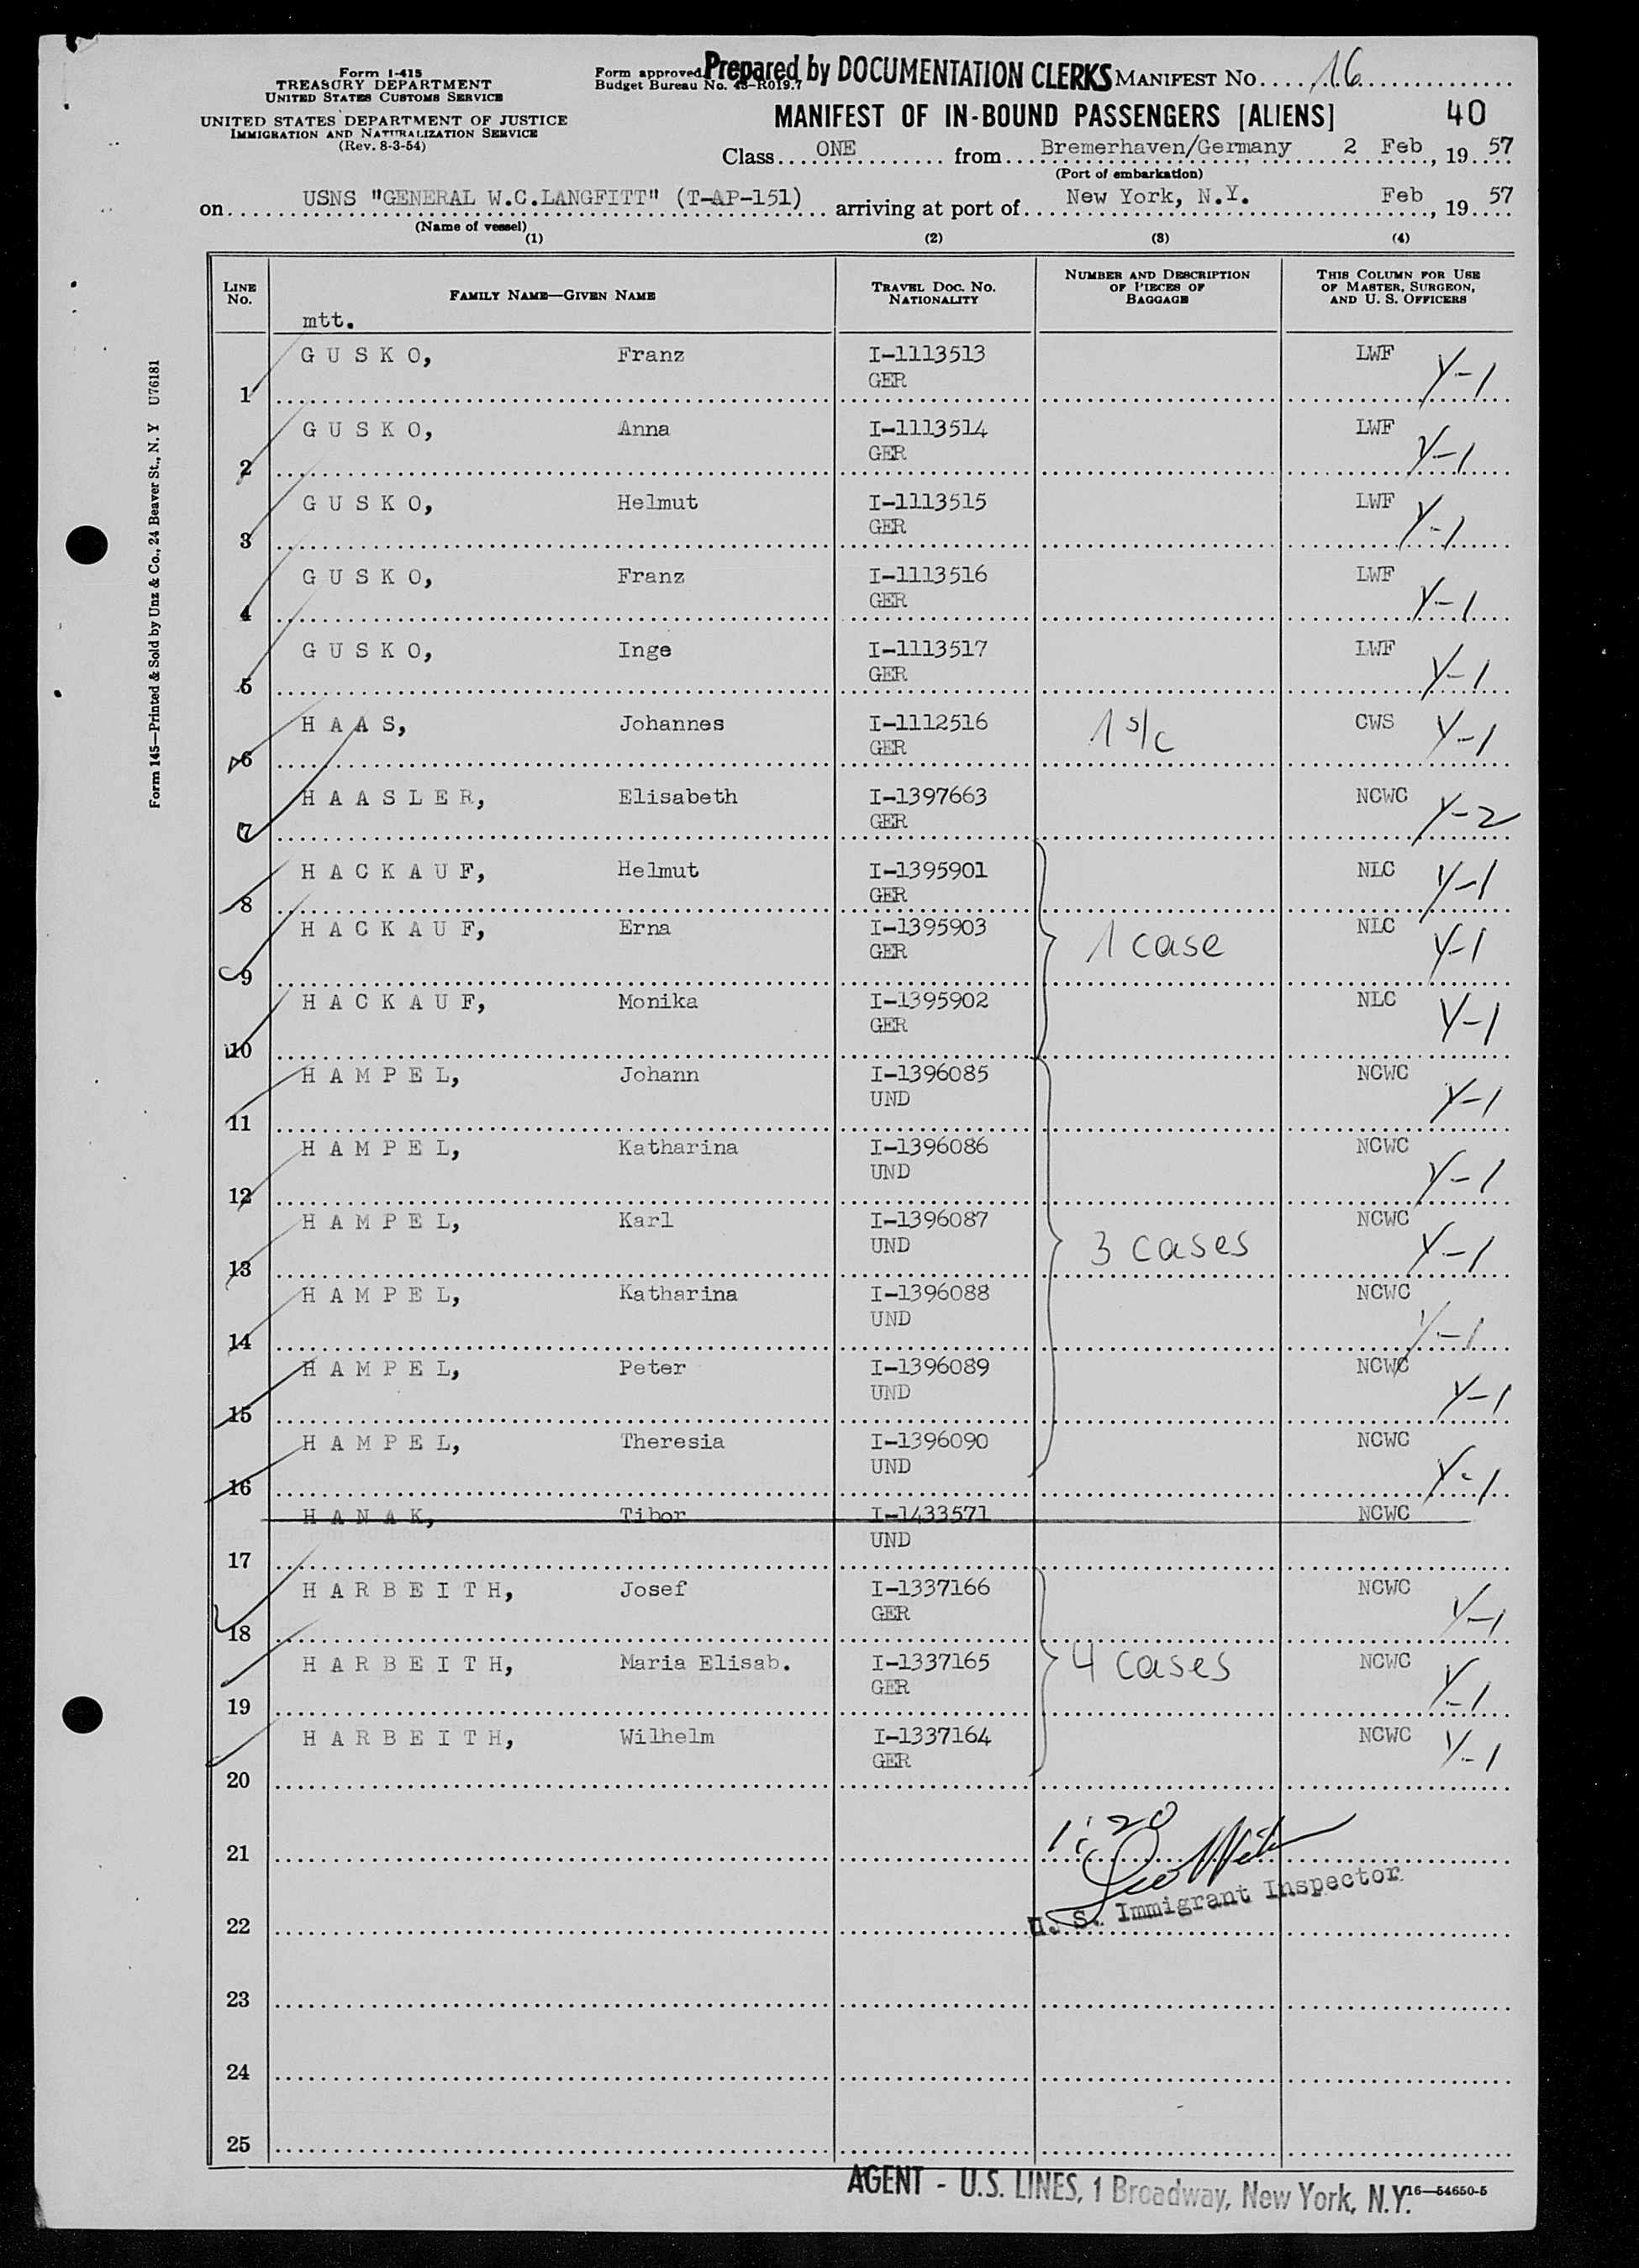 Form I-415
TREASURY DEPARTMENT
UNITED STATES CUSTOMS SERVICE
UNITED STATES DEPARTMENT OF JUSTICE
IMMIGRATION AND NATURALIZATION SERVICE
(Rev. 8-3-54)
Form approved.
Budget Bureau No. 43-R019.7
Prepared by DOCUMENTATION CLERKS MANIFEST NO. 16
MANIFEST OF IN-BOUND PASSENGERS [ALIENS] 40
Class ONE from Bremerhaven/Germany 2 Feb, 1957
(Port of embarkation)
on USNS "GENERAL W.C.LANGFITT" (T-AP-151) arriving at port of New York, N.Y. Feb, 1957
(Name of vessel)
(1) (2) (3) (4)
LINE NO. FAMILY NAME—GIVEN NAME TRAVEL DOC. NO. NATIONALITY NUMBER AND DESCRIPTION OF PIECES OF BAGGAGE THIS COLUMN FOR USE OF MASTER, SURGEON, AND U. S. OFFICERS
mtt.
1 GUSKO, Franz I-1113513 GER LWF Y-1
2 GUSKO, Anna I-1113514 GER LWF Y-1
3 GUSKO, Helmut I-1113515 GER LWF Y-1
4 GUSKO, Franz I-1113516 GER LWF Y-1
5 GUSKO, Inge I-1113517 GER LWF Y-1
6 HAAS, Johannes I-1112516 GER 1 s/c CWS Y-1
7 HAASLER, Elisabeth I-1397663 GER NCWC Y-2
8 HACKAUF, Helmut I-1395901 GER NLC Y-1
9 HACKAUF, Erna I-1395903 GER 1 case NLC Y-1
10 HACKAUF, Monika I-1395902 GER NLC Y-1
11 HAMPEL, Johann I-1396085 UND NCWC Y-1
12 HAMPEL, Katharina I-1396086 UND NCWC Y-1
13 HAMPEL, Karl I-1396087 UND 3 cases NCWC Y-1
14 HAMPEL, Katharina I-1396088 UND NCWC Y-1
15 HAMPEL, Peter I-1396089 UND NCWC Y-1
16 HAMPEL, Theresia I-1396090 UND NCWC Y-1
17 HANAK, Tibor I-1433571 UND NCWC
18 HARBEITH, Josef I-1337166 GER NCWC Y-1
19 HARBEITH, Maria Elisab. I-1337165 GER 4 cases NCWC Y-1
20 HARBEITH, Wilhelm I-1337164 GER NCWC Y-1
21
22 U. S. Immigrant Inspector
23
24
25
AGENT - U.S. LINES, 1 Broadway, New York, N.Y. 16—54650-5
Form 145—Printed & Sold by Unz & Co., 24 Beaver St., N. Y U76181